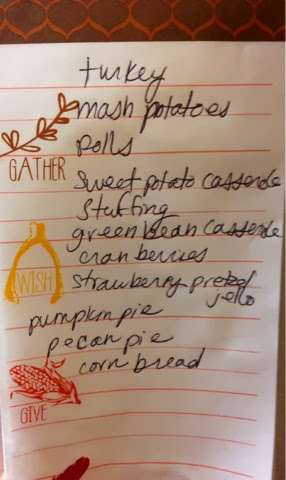 turkey
mash potatoes
Rolls
GATHER
Sweet potato casserole
Stuffing
green bean casserole
cranberries
WISH
strawberry pretzel
jello
pumpkin pie
pecan pie
corn bread
GIVE